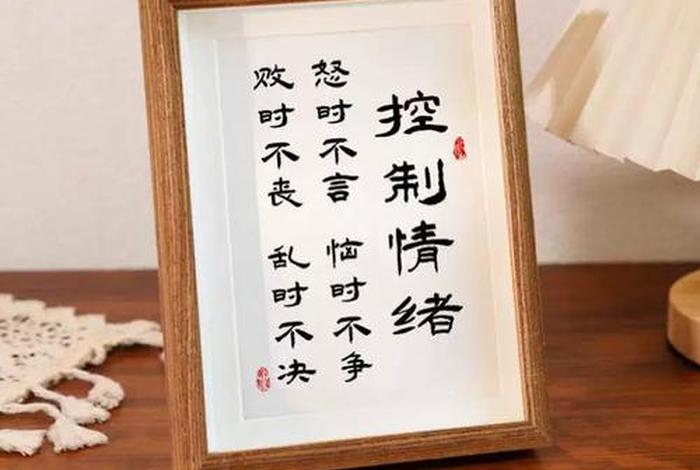 控制情绪
怒时不言 恼时不争
败时不丧 乱时不决